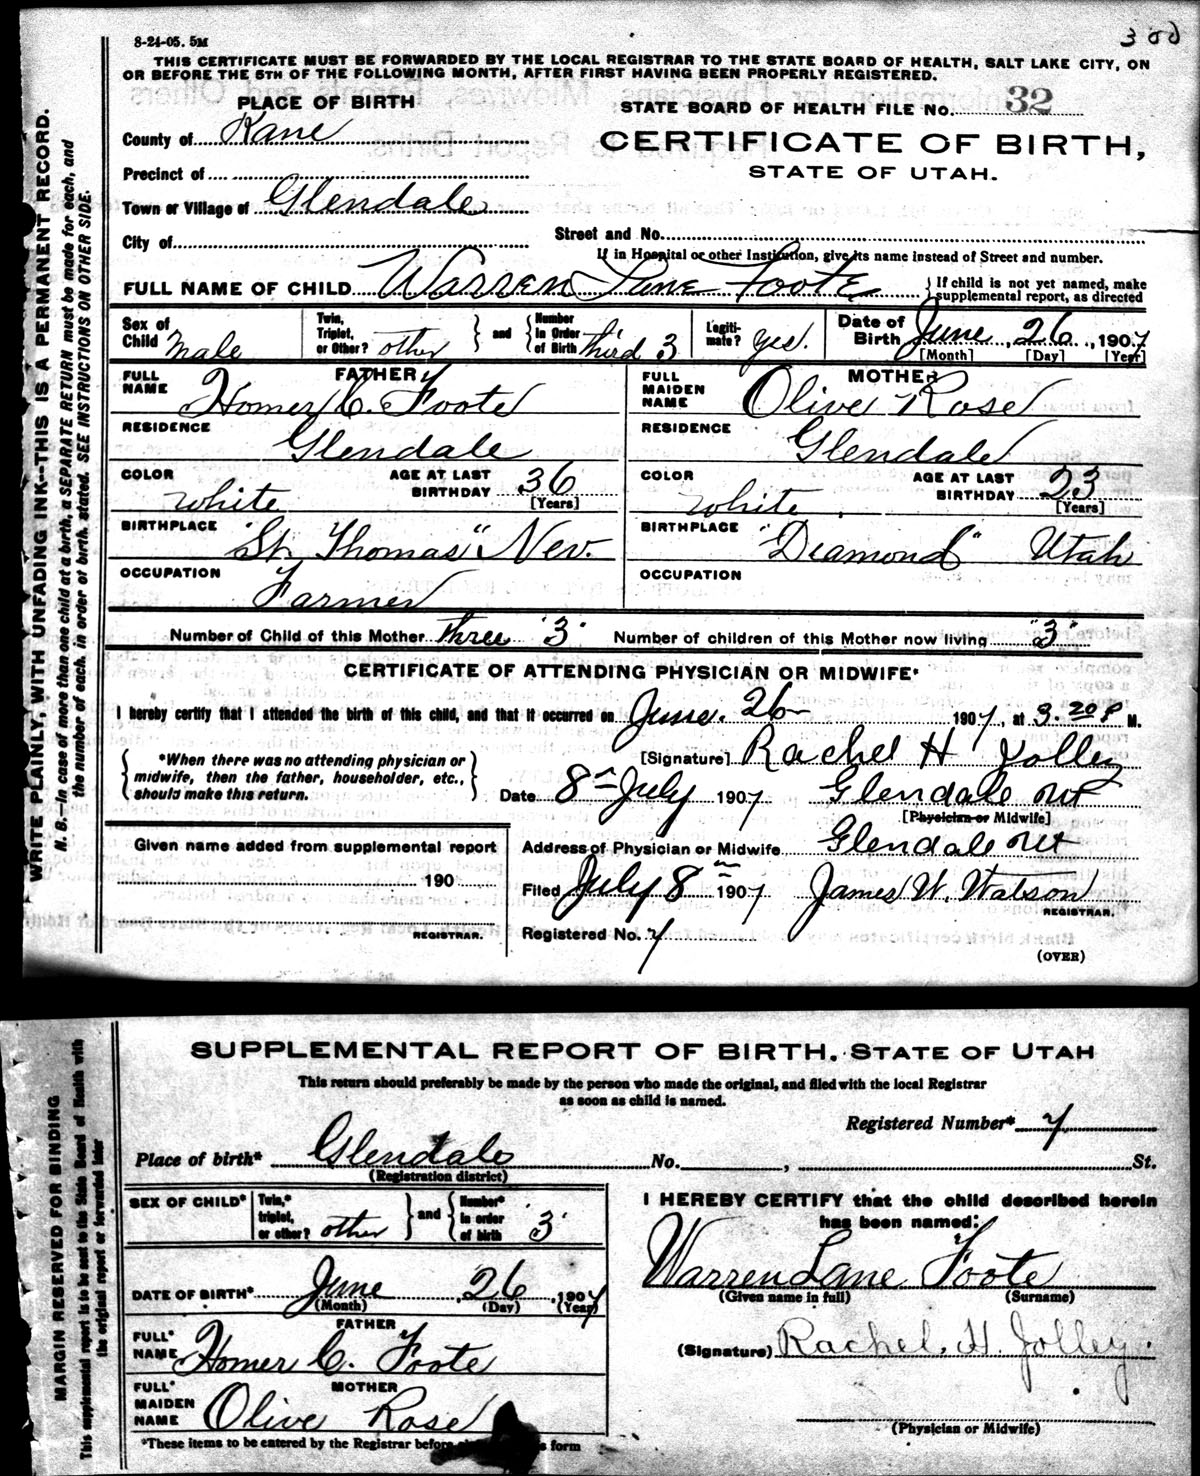 8-24-05. 5M
300
THIS CERTIFICATE MUST BE FORWARDED BY THE LOCAL REGISTRAR TO THE STATE BOARD OF HEALTH, SALT LAKE CITY, ON
OR BEFORE THE 5TH OF THE FOLLOWING MONTH, AFTER FIRST HAVING BEEN PROPERLY REGISTERED.
WRITE PLAINLY, WITH UNFADING INK--THIS IS A PERMANENT RECORD.
N. B.--In case of more than one child at a birth, a SEPARATE RETURN must be made for each, and
the number of each, in order of birth, stated. SEE INSTRUCTIONS ON OTHER SIDE.
PLACE OF BIRTH
STATE BOARD OF HEALTH FILE No. 32
County of Kane
CERTIFICATE OF BIRTH,
STATE OF UTAH.
Precinct of
Town or Village of Glendale
City of
Street and No.
If in Hospital or other Institution, give its name instead of Street and number.
FULL NAME OF CHILD Warren Lane Foote
If child is not yet named, make
supplemental report, as directed
Sex of Child Male
Twin, Triplet, or Other? other
and
Number in Order of Birth third 3
Legiti-mate? yes.
Date of Birth June 26, 1907
[Month] [Day] [Year]
FATHER
FULL NAME Homer C. Foote
MOTHER
FULL MAIDEN NAME Olive Rose
RESIDENCE Glendale
RESIDENCE Glendale
COLOR white
AGE AT LAST BIRTHDAY 36
[Years]
COLOR white
AGE AT LAST BIRTHDAY 23
[Years]
BIRTHPLACE "St. Thomas" Nev.
BIRTHPLACE "Diamond" Utah
OCCUPATION Farmer
OCCUPATION
Number of Child of this Mother Three "3"
Number of children of this Mother now living "3"
CERTIFICATE OF ATTENDING PHYSICIAN OR MIDWIFE*
I hereby certify that I attended the birth of this child, and that it occurred on June. 26 1907, at 3.20 P M.
*When there was no attending physician or
midwife, then the father, householder, etc.,
should make this return.
[Signature] Rachel H Jolley
Date 8th July 1907 Glendale Ut
[Physician or Midwife]
Given name added from supplemental report
190
REGISTRAR.
Address of Physician or Midwife Glendale Ut
Filed July 8th 1907 James W. Watson
REGISTRAR.
Registered No. 7
(OVER)
MARGIN RESERVED FOR BINDING
This supplemental report is to be sent to the State Board of Health with
the original report or forwarded later
SUPPLEMENTAL REPORT OF BIRTH. STATE OF UTAH
This return should preferably be made by the person who made the original, and filed with the local Registrar
as soon as child is named.
Registered Number* 7
Place of birth* Glendale No. , St.
(Registration district)
SEX OF CHILD*
Twin,* triplet, or other? other
and
Number* in order of birth "3"
DATE OF BIRTH* June 26, 1907
(Month) (Day) (Year)
FATHER
FULL* NAME Homer C. Foote
MOTHER
FULL* MAIDEN NAME Olive Rose
*These items to be entered by the Registrar before form
I HEREBY CERTIFY that the child described herein
has been named:
Warren Lane Foote
(Given name in full) (Surname)
(Signature) Rachel. H. Jolley.
(Physician or Midwife)